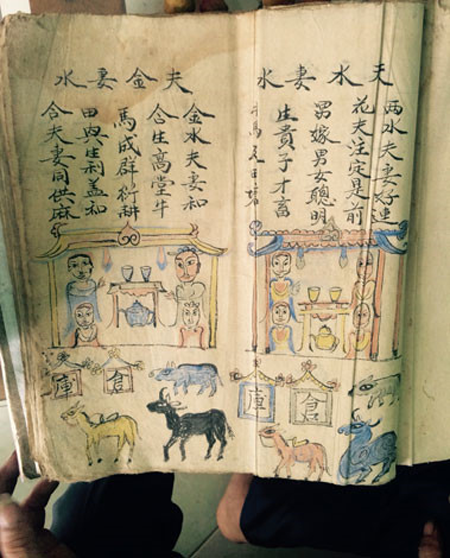 夫水妻水
两水夫妻好連
花夫注定是前
男嫁男女聰明
生貴子才畜
馬田
倉
庫
夫金妻水
金水夫妻和
合生高堂牛
馬成群衍耕
田與生利盖和
合夫妻同供麻
倉
庫